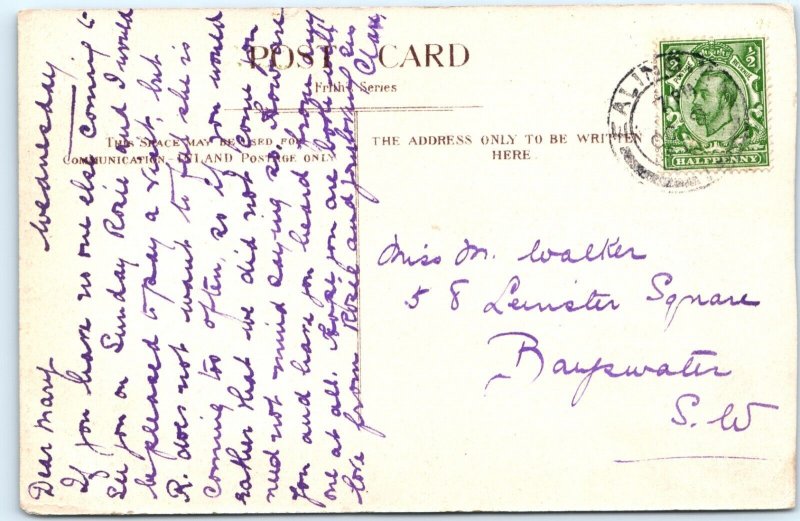 POST CARD
Frith's Series
THIS SPACE MAY BE USED FOR
COMMUNICATION. INLAND POSTAGE ONLY
THE ADDRESS ONLY TO BE WRITTEN
HERE.
EALING
HALFPENNY
Wednesday
Dear Mary
If you have no one else coming to
see you on Sunday Rosie and I would
be pleased to pay a visit, but
R. does not want to if she is
coming too often, so if you would
rather that we did not come you
need not mind saying so. How are
you and have you heard from my
one at all. Hope you are both well
love from Rosie and
Clara
Miss M. Walker
58 Leinster Square
Bayswater
S. W